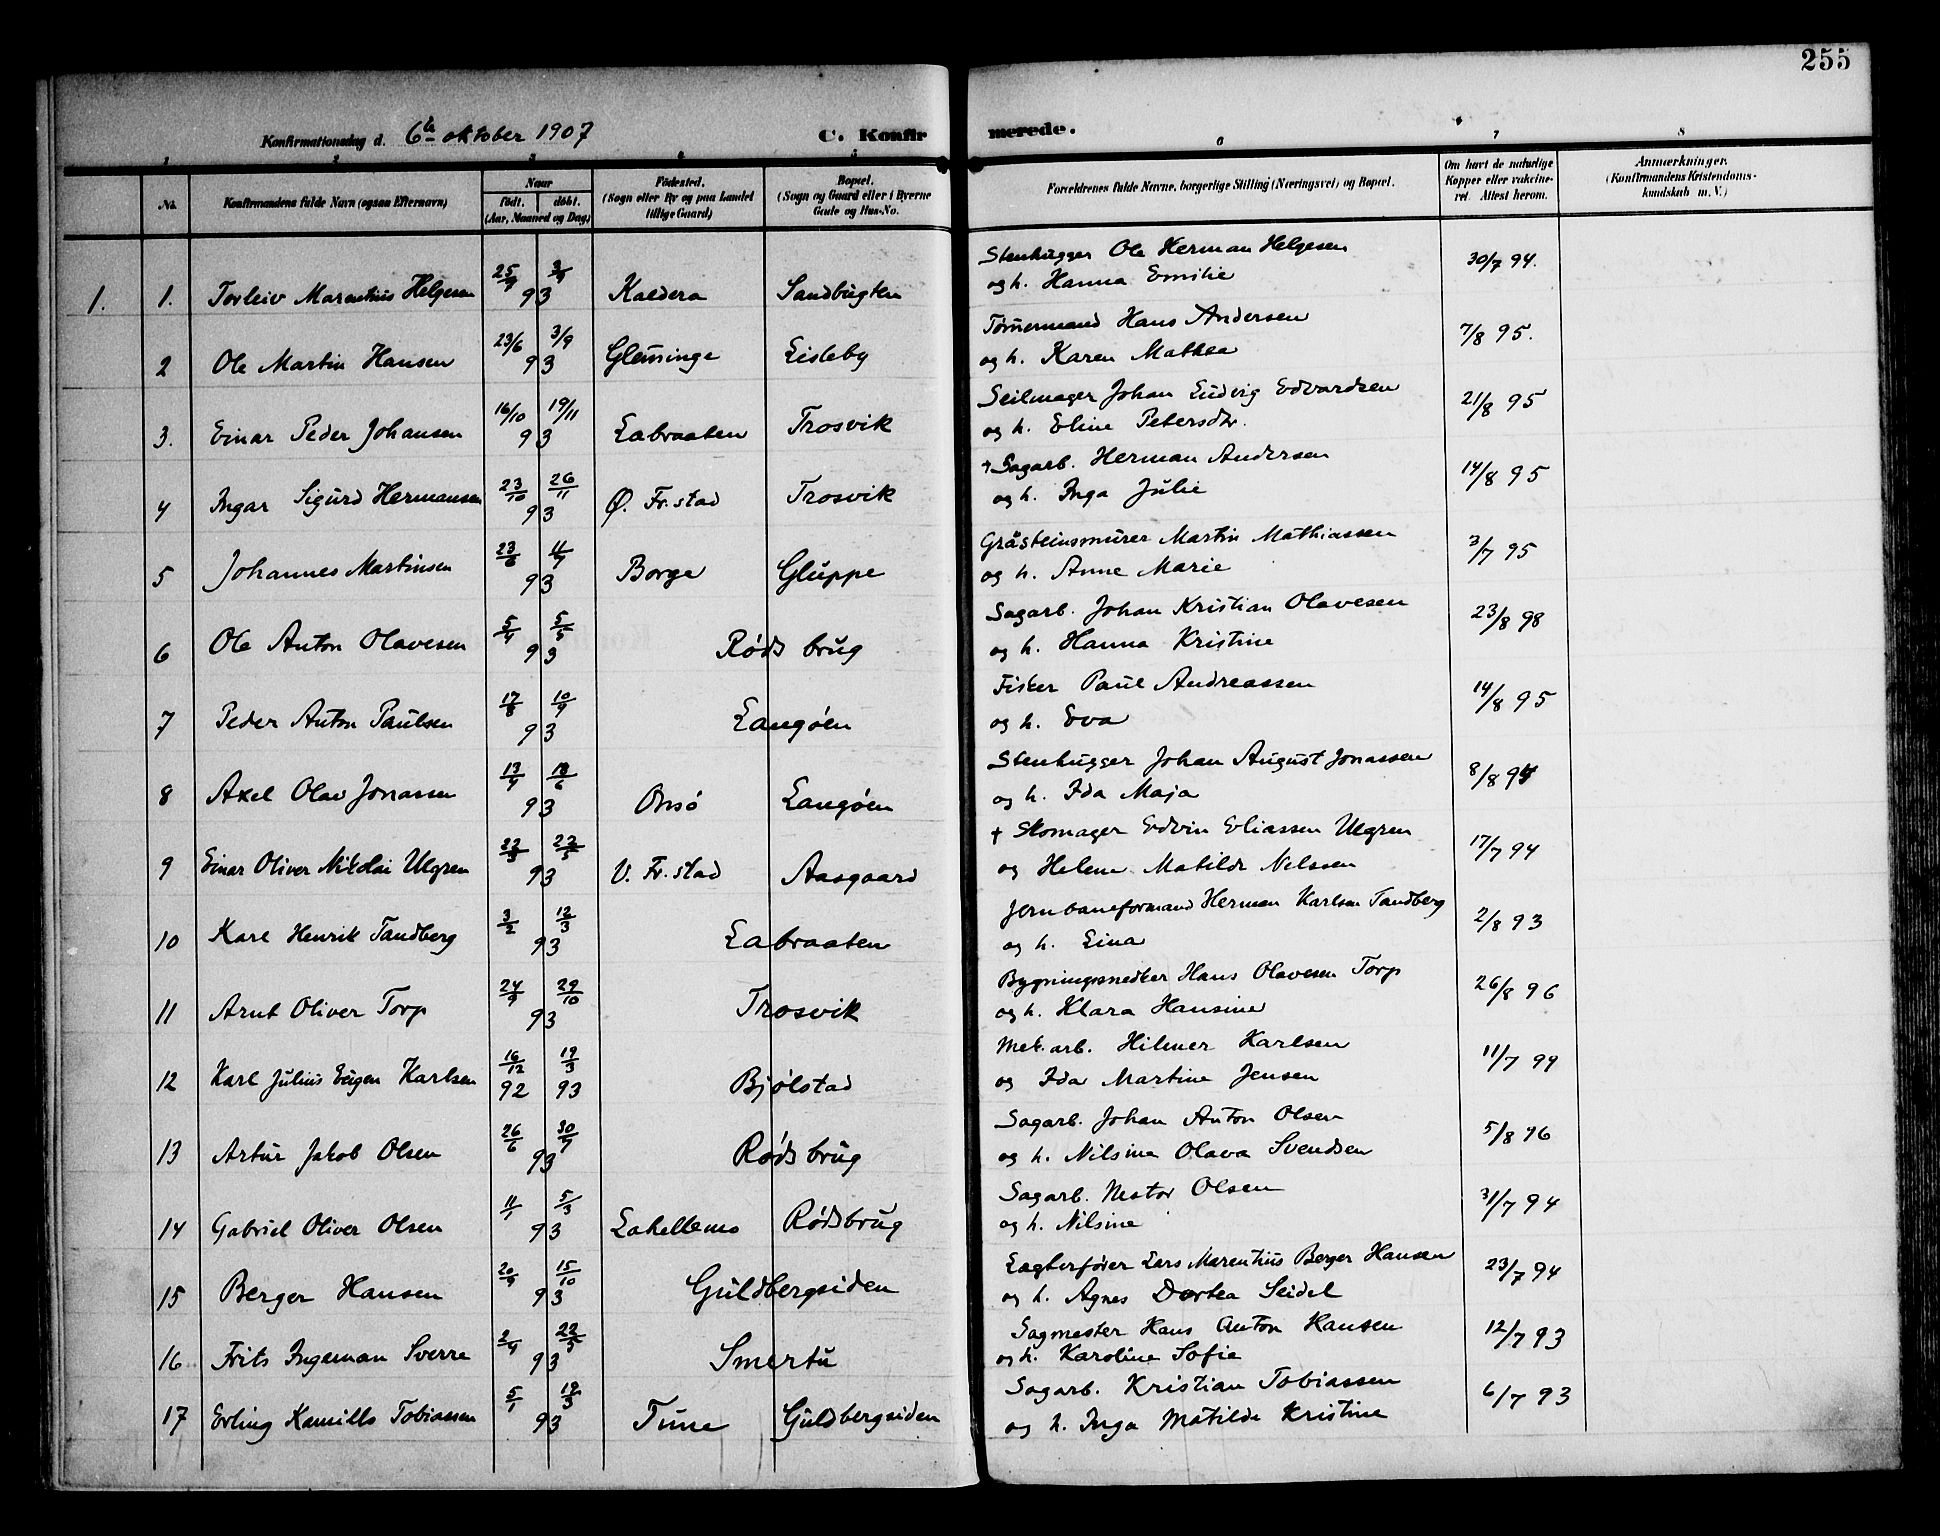 255
Konfirmationsdag d. 6te oktober 1907 C. Konfirmerede.
1 2 3 4 5 6 7 8
No.
Konfirmandens fulde Navn (ogsaa Efternavn)
Naar
født. døbt.
(Aar, Maaned og Dag)
Fødested.
(Sogn eller By og paa Landet
tillige Gaard)
Bopæl.
(Sogn og Gaard eller i Byerne
Gade og Hus-No.
Forældrenes fulde Navne, borgerlige Stilling (Næringsvei) og Bopæl.
Om havt de naturlige
Kopper eller vaccine-
ret. Attest herom.
Anmærkninger.
(Konfirmandens Kristendoms-
kundskab m. V.)
1. 1. Torleiv Marentius Helgesen 25/7 3/9 93 Kaldera Sandbugten Stenhugger Ole Herman Helgesen 30/7 94.
og h. Hanna Emilie
2 Ole Martin Hansen 23/6 3/9 93 Glemminge Lisleby Tømmermand Hans Andersen 7/8 95.
og h. Karen Mathea
3. Einar Peder Johansen 16/10 19/11 93 Labraaten Trosvik Seilmager Johan Ludvig Edvardsen 21/8 95
og h. Eline Petersdtr.
4 Ingar Sigurd Hermansen 23/10 26/11 93 Ø. Fr.stad Trosvik † Sagarb. Herman Andersen 14/8 95
og h. Inga Julie
5 Johannes Martinsen 23/6 11/7 93 Borge Gluppe Gråsteinsmurer Martin Mathiassen 3/7 95
og h. Anne Marie
6 Ole Anton Olavesen 5/4 5/5 93 Røds brug Sagarb. Johan Kristian Olavesen 23/8 98
og h. Hanna Kristine
7 Peder Anton Paulsen 17/8 10/9 93 Langøen Fisker Paul Andreassen 14/8 95
og h. Eva
8 Axel Olav Jonassen 13/4 18/6 93 Onsø Langøen Stenhugger Johan August Jonassen 8/8 94
og h. Ida Maja
9 Einar Oliver Nikolai Ulgren 22/3 22/5 93 V. Fr.stad Aasgaard † Skomager Edvin Eliassen Ulgren 17/7 94
og Helene Matilde Nelssen
10 Karl Henrik Tandberg 3/2 12/3 93 Labraaten Jernbaneformand Herman Karlsen Tandberg 2/8 93
og h. Lina
11 Arnt Oliver Torp 24/9 29/10 93 Trosvik Bygningssnedker Hans Olavesen Torp 26/8 96
og h. Klara Hansine
12 Karl Julius Eugen Karlsen 16/12 92 19/3 93 Bjølstad Mek.arb. Hilmer Karlsen 11/7 99
og Ida Martine Jensen
13 Artur Jakob Olsen 26/6 30/7 93 Røds brug Sagarb. Johan Anton Olsen 5/8 96
og h. Nilsine Olava Svendsen
14 Gabriel Oliver Olsen 11/1 5/3 93 Lahellemo Rødsbrug Sagarb. Nestor Olsen 31/7 94
og h. Nilsine
15 Berger Hansen 20/9 15/10 93 Guldbergsiden Lagterfører Lars Marentius Berger Hansen 23/7 94
og h. Agnes Dortea Seidel
16 Frits Ingeman Sverre 2/4 22/5 93 Smertu Sagmester Hans Anton Hansen 12/7 93
og h. Karoline Sofie
17 Erling Kamillo Tobiassen 5/1 19/3 93 Tune Guldbergsiden Sagarb. Kristian Tobiassen 6/7 93
og h. Inga Matilde Kristine